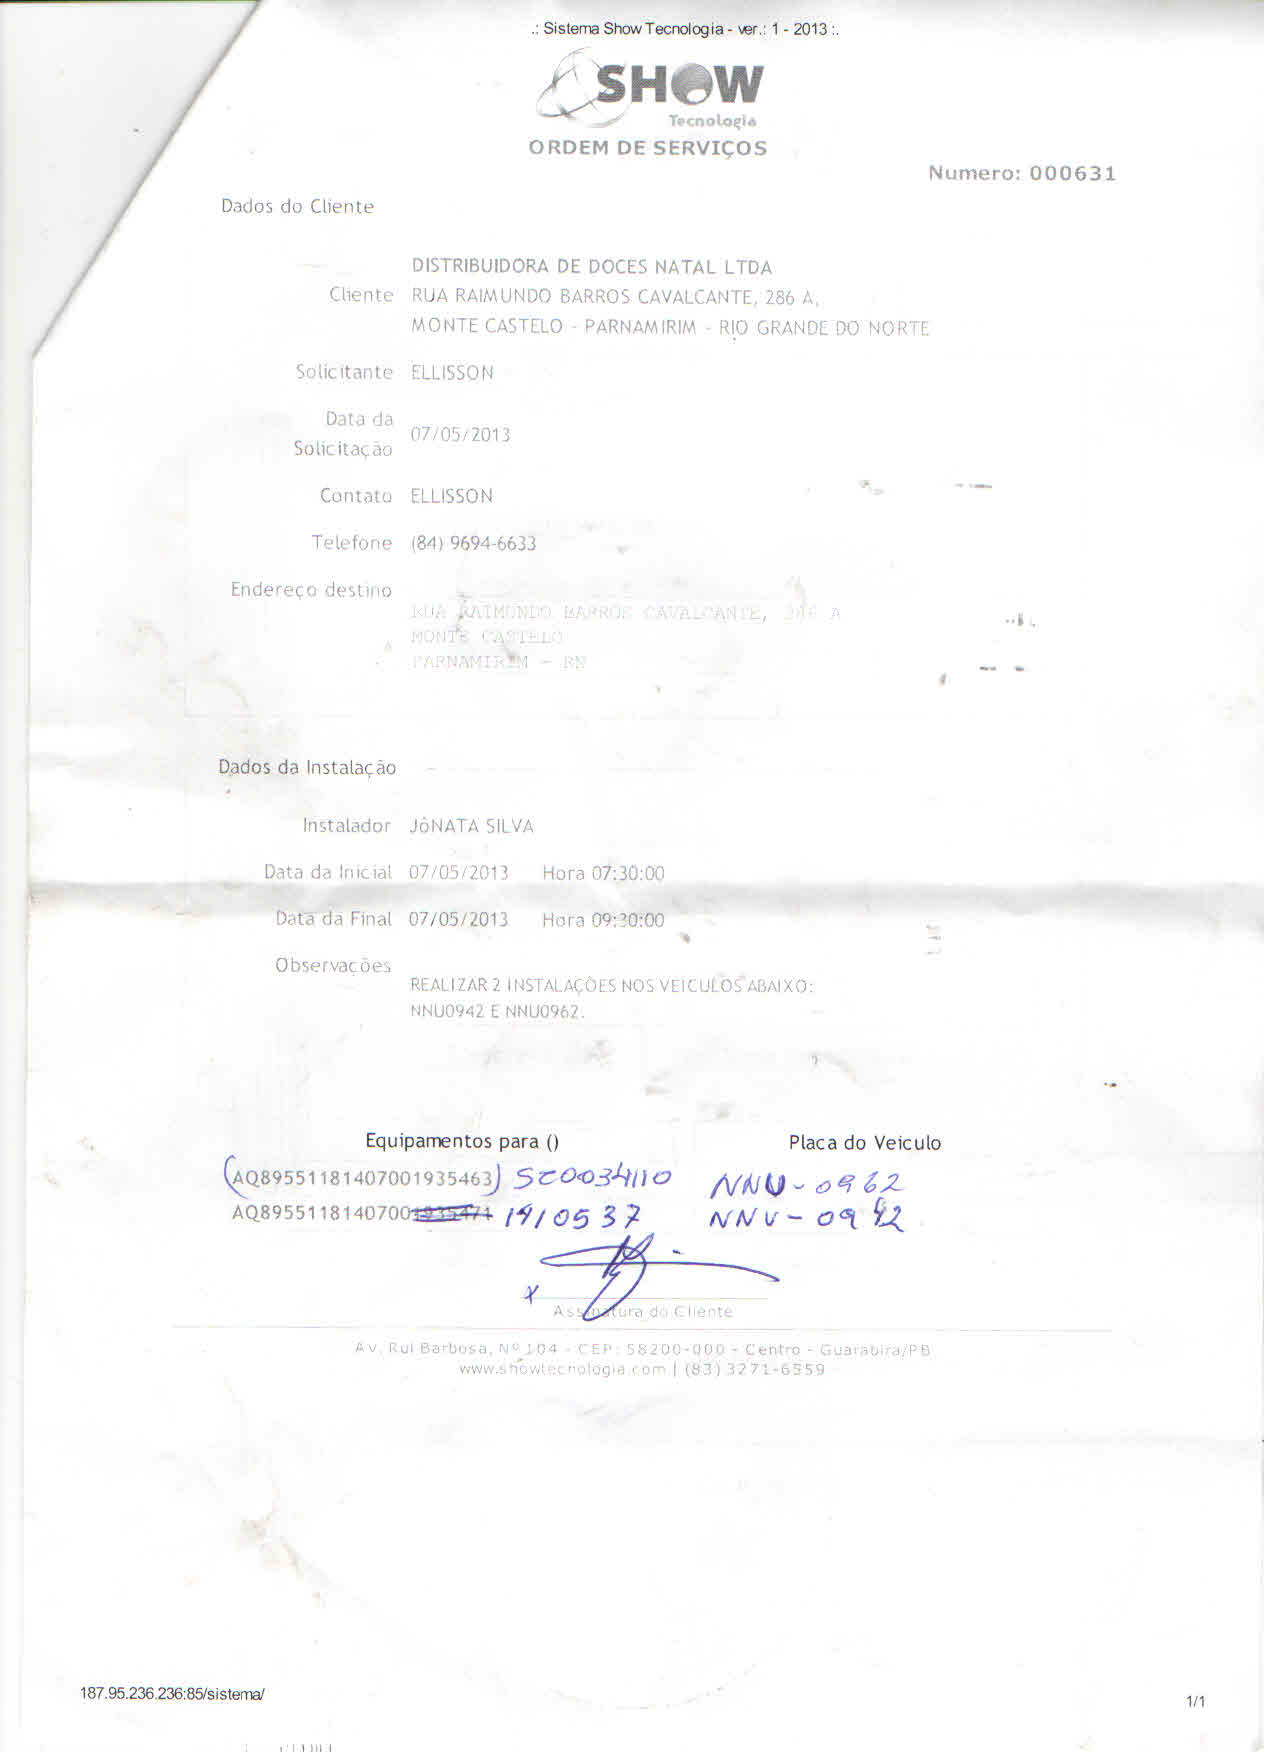 .: Sistema Show Tecnologia - ver.: 1 - 2013 :.
SHOW
Tecnologia
ORDEM DE SERVIÇOS
Numero: 000631
Dados do Cliente
DISTRIBUIDORA DE DOCES NATAL LTDA
Cliente RUA RAIMUNDO BARROS CAVALCANTE, 286 A,
MONTE CASTELO - PARNAMIRIM - RIO GRANDE DO NORTE
Solicitante ELLISSON
Data da
Solicitação 07/05/2013
Contato ELLISSON
Telefone (84) 9694-6633
Endereço destino
RUA RAIMUNDO BARROS CAVALCANTE, 286 A
MONTE CASTELO
PARNAMIRIM - RN
Dados da Instalação
Instalador JôNATA SILVA
Data da Inicial 07/05/2013 Hora 07:30:00
Data da Final 07/05/2013 Hora 09:30:00
Observações
REALIZAR 2 INSTALAÇÕES NOS VEICULOS ABAIXO:
NNU0942 E NNU0962.
Equipamentos para () Placa do Veiculo
(AQ89551181407001935463) NNU-0962
AQ89551181407001935471 1910537 NNU-0942
X
Assinatura do Cliente
Av. Rui Barbosa, Nº 104 - CEP: 58200-000 - Centro - Guarabira/PB
www.showtecnologia.com | (83) 3271-6559
187.95.236.236:85/sistema/
1/1